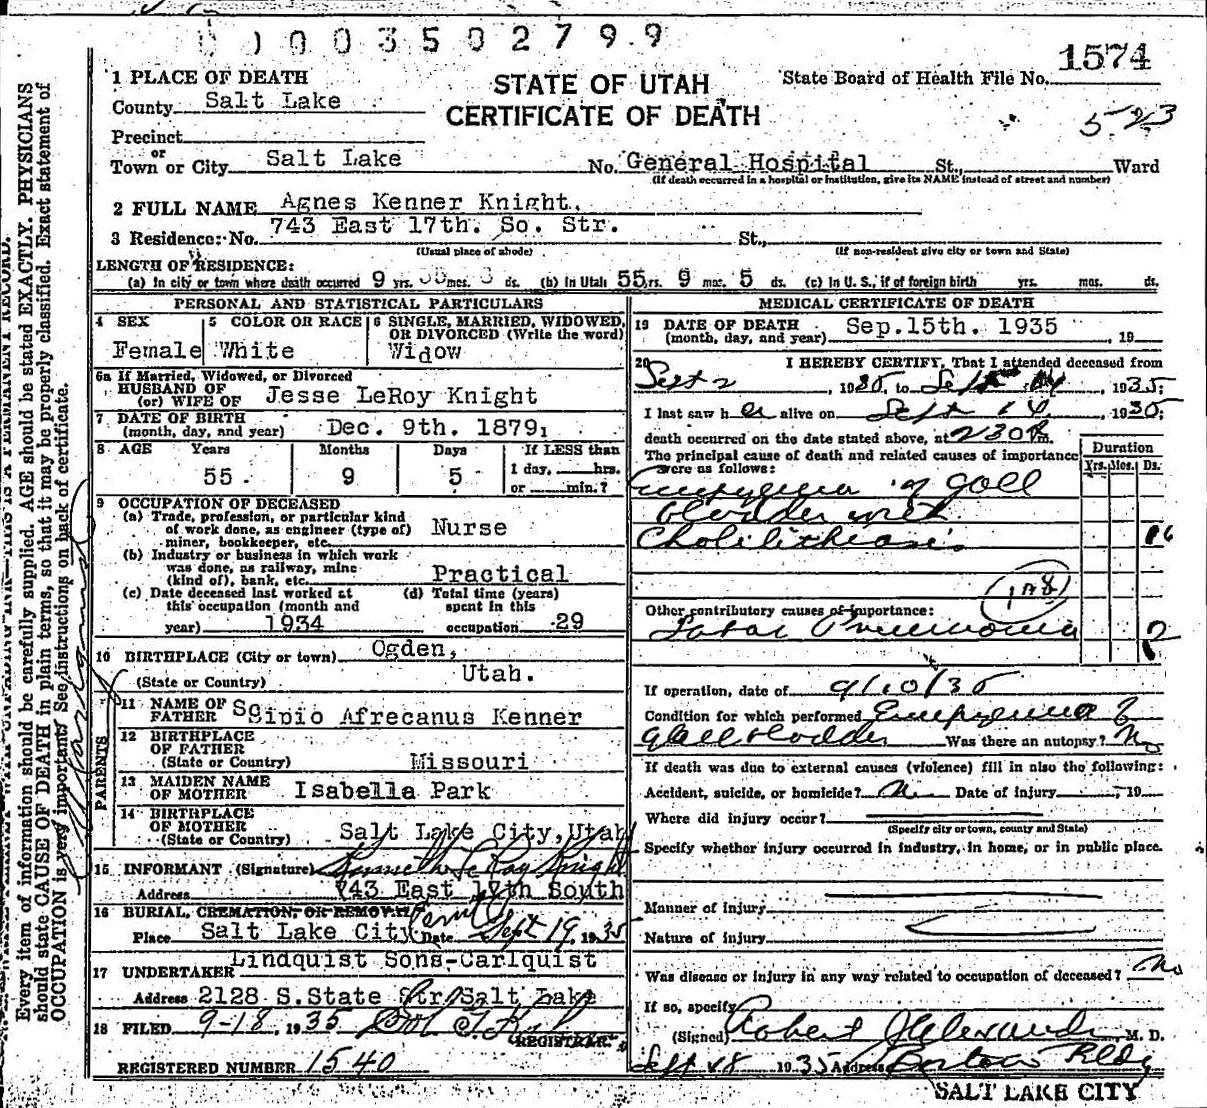 0 1 0 0 3 5 0 2 7 9 9
1574
1 PLACE OF DEATH
STATE OF UTAH
State Board of Health File No.
County Salt Lake
CERTIFICATE OF DEATH
523
Precinct
or
Town or City Salt Lake No. General Hospital St., Ward
(If death occurred in a hospital or institution, give its NAME instead of street and number)
2 FULL NAME Agnes Kenner Knight.
743 East 17th. So. Str.
3 Residence: No. St.,
(Usual place of abode) (If non-resident give city or town and State)
LENGTH OF RESIDENCE:
(a) In city or town where death occurred 9 yrs. mos. ds. (b) In Utah 55 yrs. 9 mos. 5 ds. (c) In U. S., if of foreign birth yrs. mos. ds.
PERSONAL AND STATISTICAL PARTICULARS
4 SEX 5 COLOR OR RACE 6 SINGLE, MARRIED, WIDOWED, OR DIVORCED (Write the word)
Female White Widow
6a If Married, Widowed, or Divorced
HUSBAND OF
(or) WIFE OF Jesse LeRoy Knight
7 DATE OF BIRTH
(month, day, and year) Dec. 9th. 1879
8 AGE Years Months Days If LESS than
1 day, hrs.
55 9 5 or min.?
9 OCCUPATION OF DECEASED
(a) Trade, profession, or particular kind
of work done, as engineer (type of) Nurse
miner, bookkeeper, etc.
(b) Industry or business in which work
was done, as railway, mine
(kind of), bank, etc. Practical
(c) Date deceased last worked at (d) Total time (years)
this occupation (month and spent in this
year) 1934 occupation 29
10 BIRTHPLACE (City or town) Ogden,
(State or Country) Utah.
PARENTS
11 NAME OF
FATHER Scipio Afrecanus Kenner
12 BIRTHPLACE
OF FATHER
(State or Country) Missouri
13 MAIDEN NAME
OF MOTHER Isabella Park
14 BIRTHPLACE
OF MOTHER
(State or Country) Salt Lake City, Utah
15 INFORMANT (Signature) Kenneth LeRoy Knight
Address 743 East 17th South
16 BURIAL, CREMATION, OR REMOVAL
Place Salt Lake City Date Sept 19, 1935
17 UNDERTAKER Lindquist Sons-Carlquist
Address 2128 S.State Str. Salt Lake
18 FILED 9-18, 1935
REGISTRAR.
REGISTERED NUMBER 1540
MEDICAL CERTIFICATE OF DEATH
19 DATE OF DEATH Sep.15th. 1935
(month, day, and year) , 19
20 I HEREBY CERTIFY, That I attended deceased from
Sept 2 1935, to Sept 14, 1935,
I last saw h er alive on Sept 14, 1935,
death occurred on the date stated above, at 230 P m.
The principal cause of death and related causes of importance
were as follows:
Duration
Yrs. Mos. Ds.
Empyema of gall
bladder with
Cholilithiasis 16
Other contributory causes of importance:
Lobar Pneumonia 2
If operation, date of 9/10/35
Condition for which performed Empyema of
Gall bladder Was there an autopsy? No
If death was due to external causes (violence) fill in also the following:
Accident, suicide, or homicide? Date of injury , 19
Where did injury occur?
(Specify city or town, county and State)
Specify whether injury occurred in industry, in home, or in public place.
Manner of injury
Nature of injury
Was disease or injury in any way related to occupation of deceased? No
If so, specify
(Signed) Robert Alexander, M. D.
Sept 18 1935 Address Boston Bldg
SALT LAKE CITY
Every item of information should be carefully supplied. AGE should be stated EXACTLY. PHYSICIANS
should state CAUSE OF DEATH in plain terms, so that it may be properly classified. Exact statement of
OCCUPATION is very important. See instructions on back of certificate.